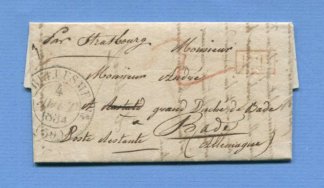 Par Strasbourg
Monsieur
Monsieur André
grand Duché de Bade
Poste restante a Bade
(Allemagne)
BELLESME
4
1834